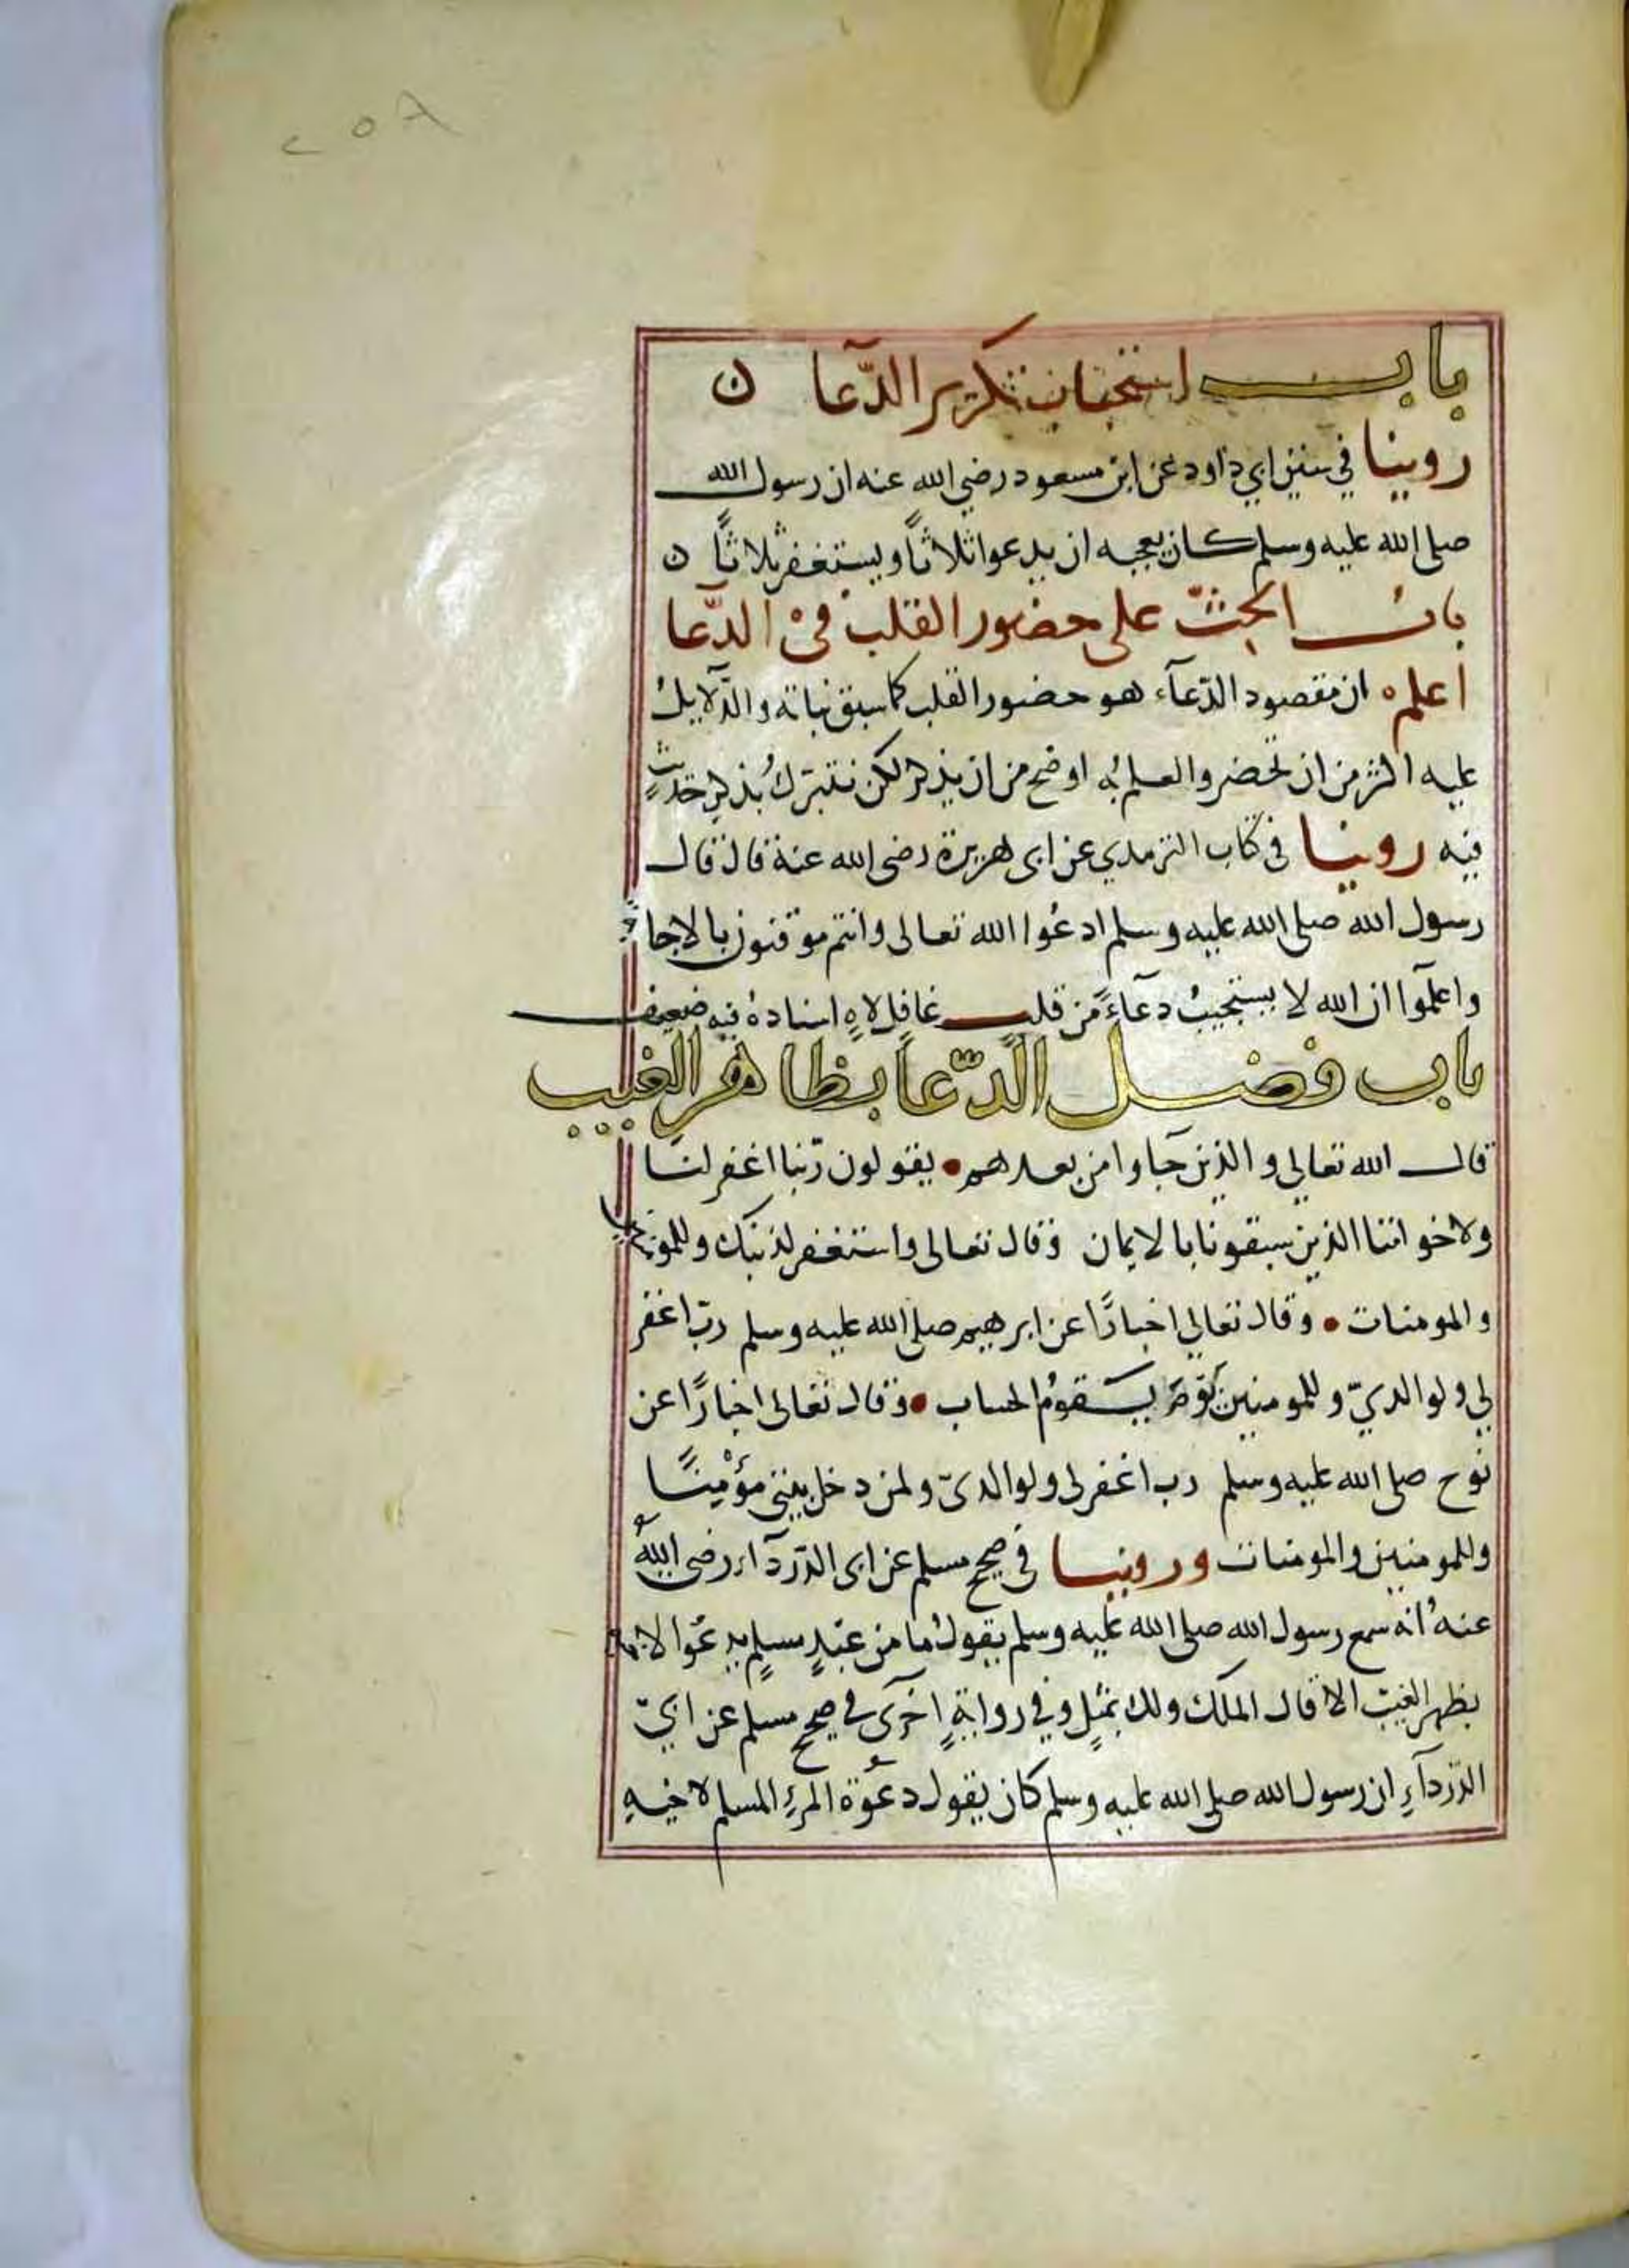 ٢٥٨
باب استحباب تكرير الدّعا ن
روينا في سنن ابي داود عن ابن مسعود رضي الله عنه ان رسول الله
صلى الله عليه وسلم كان يعجبه ان يدعوا ثلاثاً ويستغفر ثلاثاً ن
باب الحثّ على حضور القلب في الدّعا
اعلم ان مقصود الدّعآء هو حضور القلب كما سبق بيانه والدّلايل
عليه اكثر من ان تحضر والعلم به اوضح من ان يذكر لكن نتبرك بذكر حديث
فيه روينا في كتاب الترمدي عن ابى هريرة رضى الله عنه قال قال
رسول الله صلى الله عليه وسلم ادعُوا الله تعالى وانتم موقنون بالاجا
واعلموا ان الله لا يستجيبُ دعآءً من قلب غافل لاهٍ اسناده فيه ضعيف
باب فضل الدّعا بظاهر الغيب
قال الله تعالى والذين جاوا من بعدهم • يقولون ربّنا اغفر لنا
ولاخواننا الذين سبقونا بالايمان وقال تعالى واستغفر لذنبك وللمومنين
والمومنات • وقال تعالى اخبارًا عن ابرهيم صلى الله عليه وسلم ربّ اغفر
لي ولوالديّ وللمومنين يوم يقوم الحساب • وقال تعالى اخبارًا عن
نوح صلى الله عليه وسلم رب اغفر لى ولوالدىّ ولمن دخل بيتى مؤمِنًا
وللمومنين والمومنات وروينا في صحيح مسلم عن ابى الدّردآء رضى اللهُ
عنهُ انه سمع رسول الله صلى الله عليه وسلم يقول ما من عبْدٍ مسلمٍ يدعُوا لاخيه
بظهر الغيب الا قال الملك ولك بمثلٍ وفي روايةٍ اخرى في صحيح مسلم عن ابيّ
الدّردآءِ ان رسول الله صلى الله عليه وسلم كان يقول دعْوة المرءِ المسلم لاخيهِ